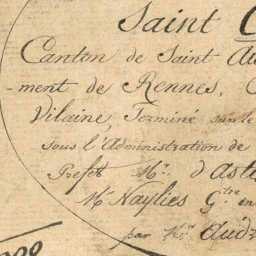 Saint C
Canton de Saint Au
-ment de Rennes,
Vilaine, Terminé sur le
sous l'Administration de
Préfet Mr. d'Ast
Mr Naylies Gtre en
par Mr. Aud